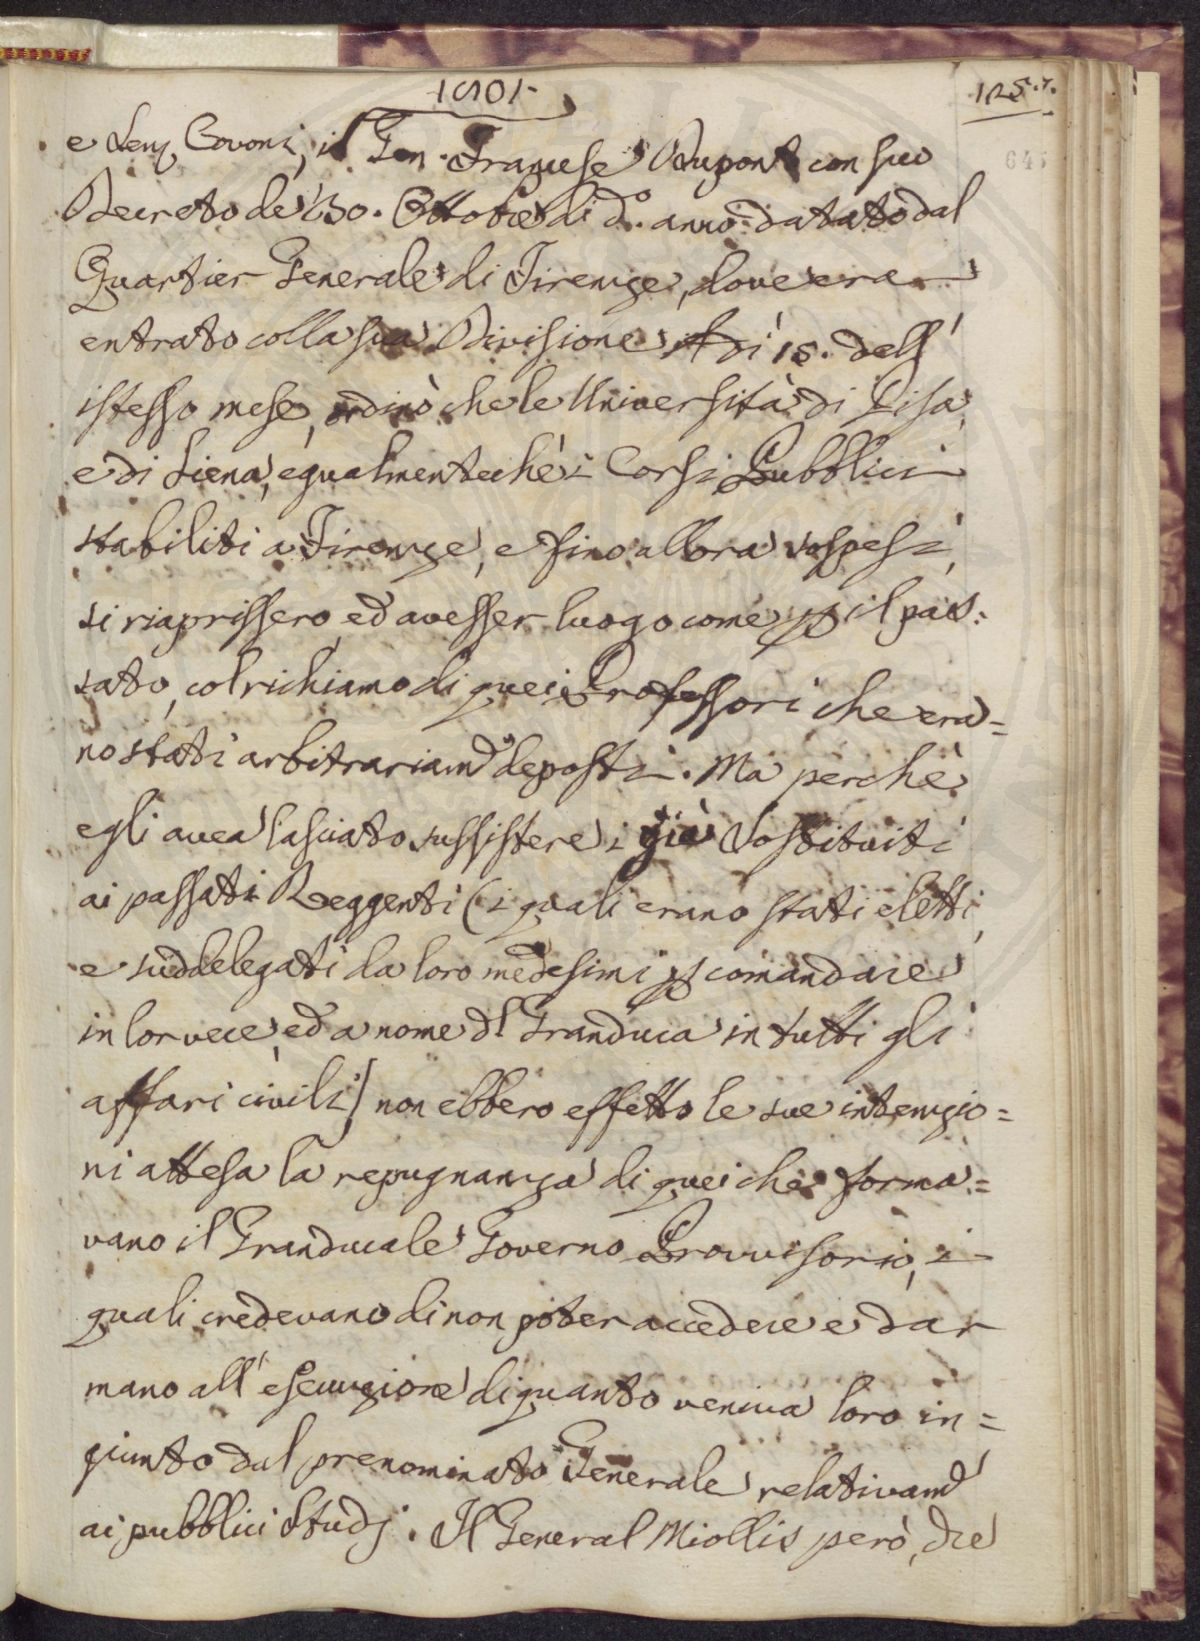 1801.
125.
645
e Lenz Covoni, il Gen. Franzese Dupont con suo
Decreto de' 30. Ottobre di d.o anno datato dal
Quartier Generale di Firenze, dove era
entrato colla sua Divisione A dì 15. dell'
istesso mese, ordinò che le Università di Pisa,
e di Siena, egualmente chè i Corsi Pubblici
stabiliti a Firenze, e fino allora sospesi,
si riaprissero, ed avesser luogo come p il pas=
sato, col richiamo di quei Professori che era=
no stati arbitrariam.e deposti. Ma perchè
egli avea lasciato sussistere i già Sostituiti
ai passati Reggenti (i quali erano stati eletti,
e suddelegati da loro medesimi p comandare
in lor vece, ed a nome dl Granduca in tutti gli
affari civili) non ebbero effetto le sue intenzio=
ni attesa la repugnanza di quei che forma=
vano il Granducale Governo Provvisorio, i
quali credevano di non poter accedere e dar
mano all' esecuzione di quanto veniva loro in=
giunto dal prenominato Generale relativam.e
ai pubblici Studj. Il General Miollis però, che